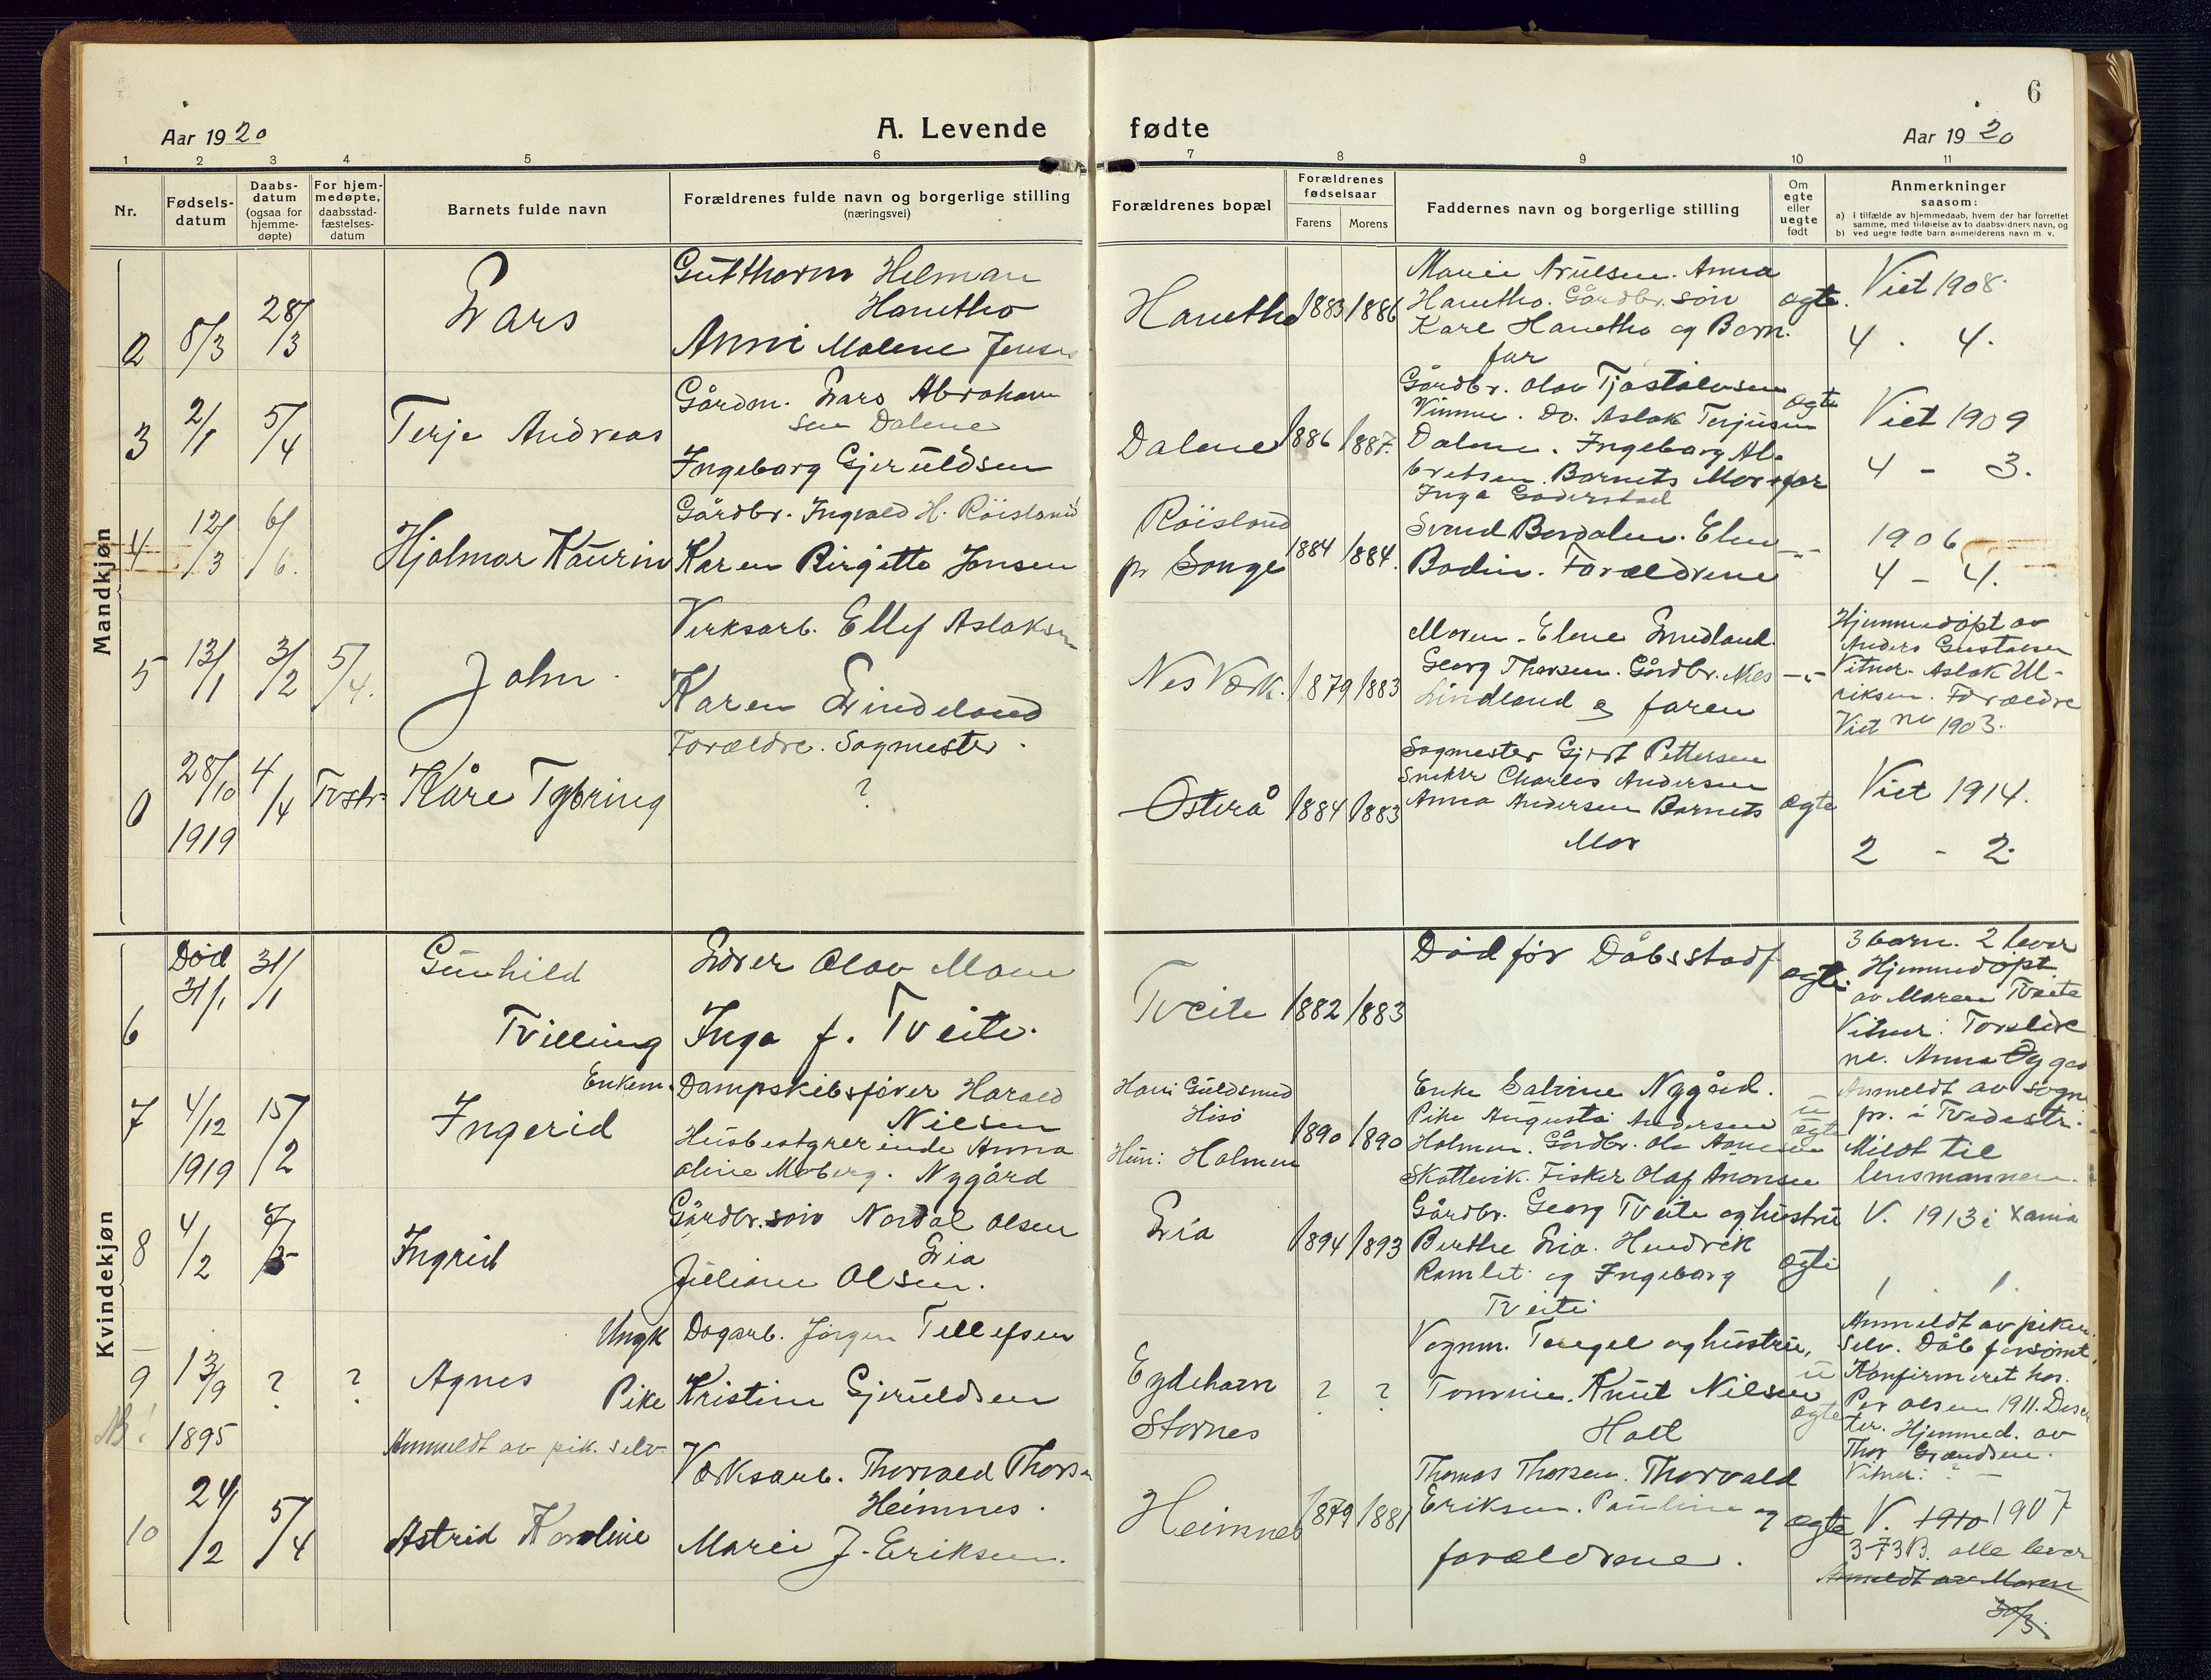 6
Aar 1920
A. Levende fødte
Aar 1920
1 2 3 4 5 6 7 8 9 10 11
Nr.
Fødsels-
datum
Daabs-
datum
(ogsaa for
hjemme-
døpte)
For hjem-
medøpte,
daabsstad-
fæstelses-
datum
Barnets fulde navn
Forældrenes fulde navn og borgerlige stilling
(næringsvei)
Forældrenes bopæl
Forældrenes
fødselsaar
Farens
Morens
Faddernes navn og borgerlige stilling
Om
egte
eller
uegte
født
Anmerkninger
saasom:
a) i tilfælde av hjemmedaab, hvem der har forrettet
samme, med tilføielse av to daabsvidners navn, og
b) ved uegte fødte barn anmelderens navn m. v.
Mandkjøn
2
8/3
28/3
Lars
Gutthorm Helman
Hanetho
Anni Malene Jensen
Hanetho
1883
1886
Anna
Hanetho. Gårdbr. søn
Kare Hanetho og Barn.
far
ægte.
Viet 1908.
4 . 4.
3
2/1
5/4
Terje Andreas
Gårdm. Lars Abraham
sen Dalene
Ingeborg Gjeruldsen
Dalene
1886
1887.
Gårdbr. Olav Tjøstølvsen
Vimme. Do. Aslak Terjusen
Dalene. Ingeborg Al-
bretsen. Barnets Morfar
ægte
Viet 1909
4 - 3.
4
12/3
6/6.
Hjalmar Kaurin
Gårdbr. Ingvald H. Röisland
Karen Birgitte Jensen
Röisland
pr Songe
1884
1884.
Inga Goderstad
Svend Bordalen. Elen
Bodin. Forældrene
-"-
1906
4 - 4.
5
13/1
3/2
5/4.
John.
Verksarb. Ellef Aslaksen
Karen Lindeland
Nes Værk.
1879
1883
Moren. Elene
Georg Thorsen. Gårdbr. Nils
Lindland og faren
-"-
Hjemmedøpt av
Anders Gustavsen
Vitner. Aslak Ul-
riksen. Forældre
Viet 1903.
6
28/10
1919
4/4
Tvstr.
Kåre Tybring
Forældre. Sagmester.
?
Østerå
1884
1883
Sagmester Gjert Pettersen
Snekker Charles Andersen
Anna Andersen Barnets
Mor
ægte
Viet 1914.
2 - 2.
Kvindekjøn
6
Død
31/1
31/1
Gunhild
Tvilling
Lærer Olav Moen
Inga f. Tveite.
Tveite
1882
1883
Død før Dåbsstadf
ægte.
3 barn. 2 lever
Hjemmedøpt
av Maren Tveite
Vitner: Forældre
ne. Anna
7
4/12
1919
15/2
Ingerid
Enkem.
Dampskibsfører Harald
Nilsen
Husbestyrerinde Anna
oline Moberg. Nygård
Han: Guldsmed
Hisö
Hun: Holmen
1890
1890
Enke Sabine Nygård.
Pike Augusta Andersen
Holmen. Gårdbr. Ole
Skottevik. Fisker Olaf Anonsen
u
ægte
Anmeldt av sogne
pr. i Tvedestr.
Meldt til
lensmannen.
8
4/2
Ingrid
Gårdbr. søn Nordal Olsen
Lia
Juliane Olsen.
Lia
1894
1893
Gårdbr. Georg Tveite og hustru
Berthe Lia. Hendrik
Ramlet og Ingeborg
Tveite
ægte
V. 1913 i Xania
1 . 1.
9
NB!
13/9
1895
?
?
Agnes
Anmeldt av pik. selv.
Ungk
Dagarb. Jörgen Tellefsen
Pike
Kristine Gjeruldsen
Eydehavn
Stornes
?
?
Vognm. Tengel og hustru,
Tomine. Knut Nilsen
Holt
u
ægte
Anmeldt av piken
selv. Dåb forsømt.
Konfirmeret hos.
Per Olsen 1911.
Hjemmed. av
Thor
Vitner: ? -
10
24/2
5/4
Astrid Karoline
Værksarb. Thorvald Thorsen
Heimnes.
Marie J. Eriksen.
Heimnes
1879
1881
Thomas Thorsen. Thorvald
Eriksen. Pauline og
forældrene.
ægte
V. 1910 1907
3 B. alle lever
Anmeldt av Moren
30/3.